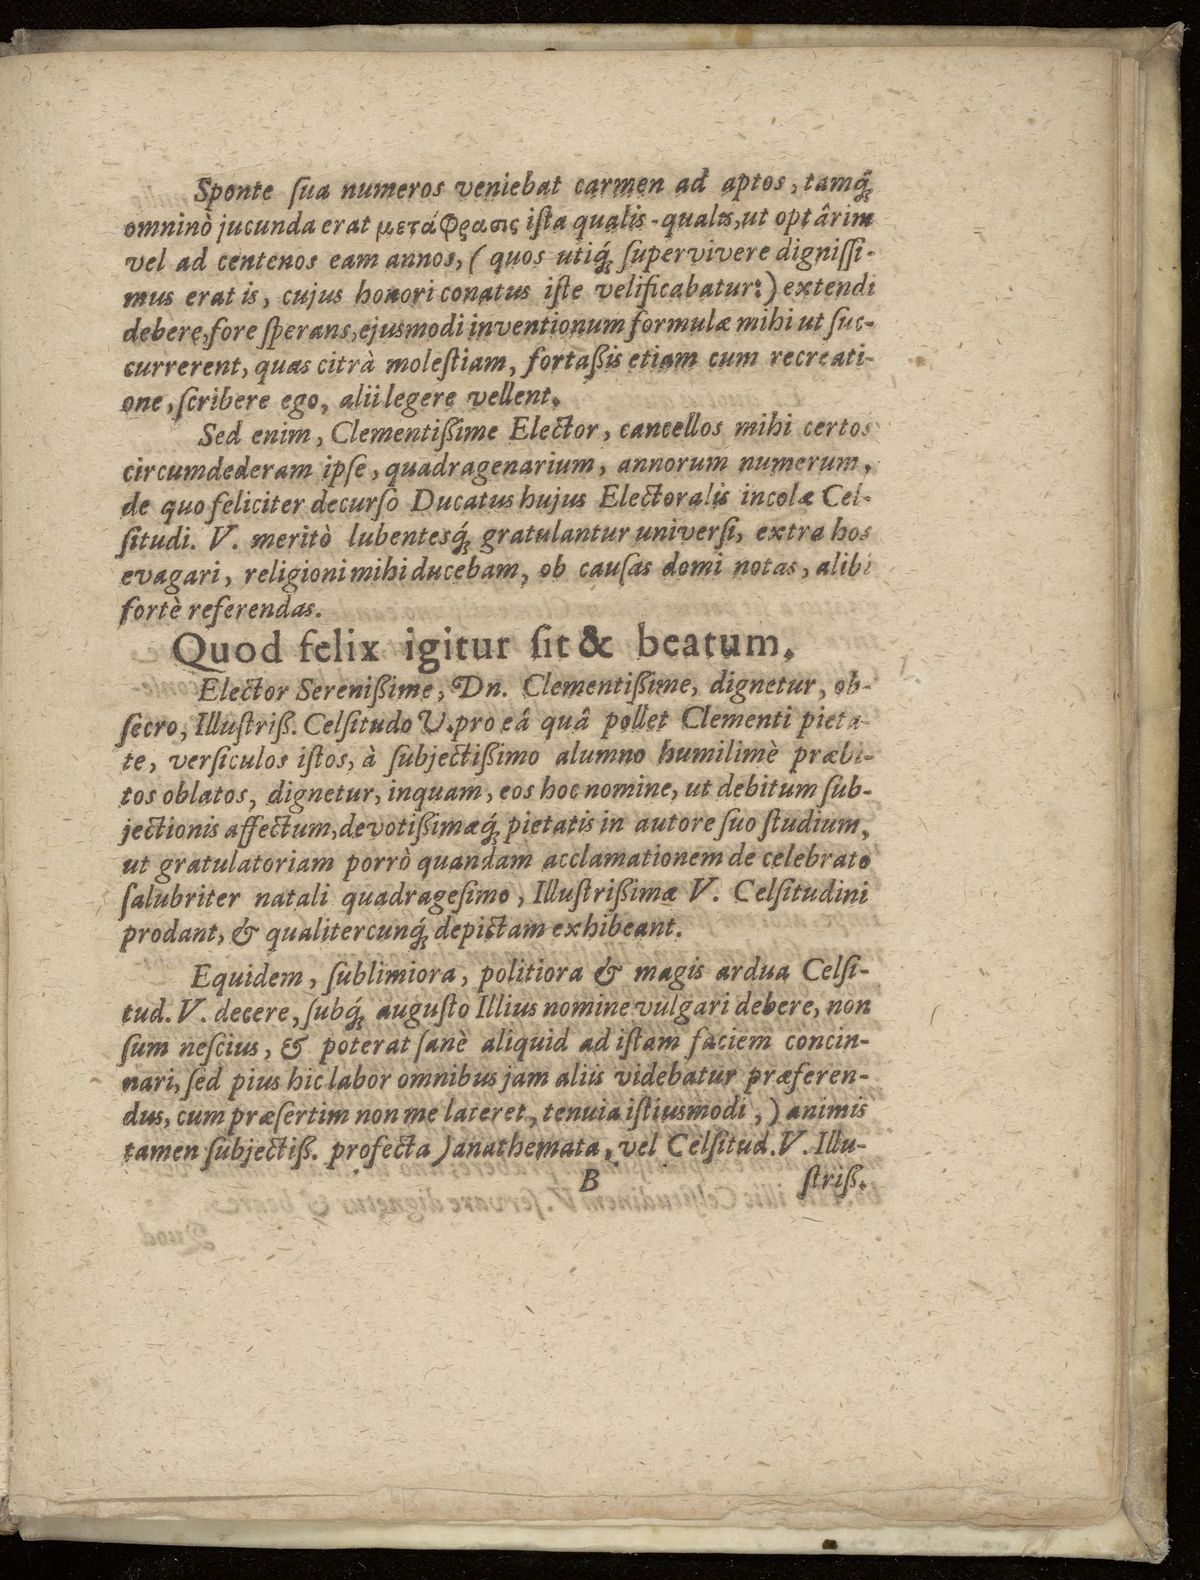 Sponte ſua numeros veniebat carmen ad aptos, tamq́;
omninò jucunda erat μετάφρασις iſta qualis-qualis, ut optârim
vel ad centenos eam annos, ( quos utiq́; ſupervivere digniſſi-
mus erat is, cujus honori conatus iſte velificabatur:) extendi
debere, fore ſperans, ejusmodi inventionum formulæ mihi ut ſuc-
currerent, quas citrà moleſtiam, fortaßis etiam cum recreati-
one, ſcribere ego, alii legere vellent.
Sed enim, Clementißime Elector, cancellos mihi certos
circumdederam ipſe, quadragenarium, annorum numerum,
de quo feliciter decurſo Ducatus hujus Electoralis incolæ Cel-
ſitudi. V. meritò lubentesq́; gratulantur univerſi, extra hos
evagari, religioni mihi ducebam, ob cauſas domi notas, alibi
fortè referendas.
Quod felix igitur ſit & beatum.
Elector Serenißime, Dn. Clementißime, dignetur, ob-
ſecro, Illuſtriß. Celſitudo V. pro eâ quâ pollet Clementi pieta-
te, verſiculos iſtos, à ſubjectißimo alumno humilimè præbi-
tos oblatos, dignetur, inquam, eos hoc nomine, ut debitum ſub-
jectionis affectum, devotißimæq́; pietatis in autore ſuo ſtudium,
ut gratulatoriam porrò quandam acclamationem de celebrato
ſalubriter natali quadrageſimo, Illuſtrißimæ V. Celſitudini
prodant, & qualitercunq́; depictam exhibeant.
Equidem, ſublimiora, politiora & magis ardua Celſi-
tud. V. decere, ſubq́; auguſto Illius nomine vulgari debere, non
ſum neſcius, & poterat ſanè aliquid ad iſtam faciem concin-
nari, ſed pius hic labor omnibus jam aliis videbatur præferen-
dus, cum præſertim non me lateret, tenuia iſtiusmodi, ) animis
tamen ſubjectiß. profecta ) anathemata, vel Celſitud. V. Illu-
B ſtriß.